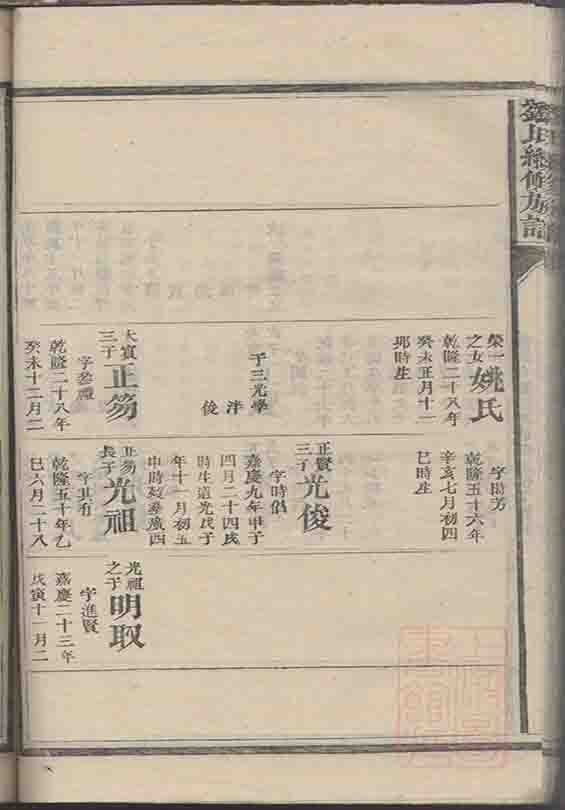 氏續修族譜
榮一
之女
姚氏
乾隆二十八年
癸未正月十一
卯時生
子三光學
洋
俊
大賓
三子
正笏
字參禮
乾隆二十八年
癸未十二月二
字揚芳
乾隆五十六年
辛亥七月初四
巳時生
正賢
三子
光俊
字時倡
嘉慶九年甲子
四月二十四戌
時生道光戊子
年十一月初五
申時歿
正笏
長子
光祖
字其有
乾隆五十年乙
巳六月二十八
光祖
之子
明取
字進賢
嘉慶二十三年
戊寅十一月二